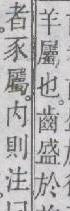 羊屬也。齒盛於
者豕屬。内則注曰